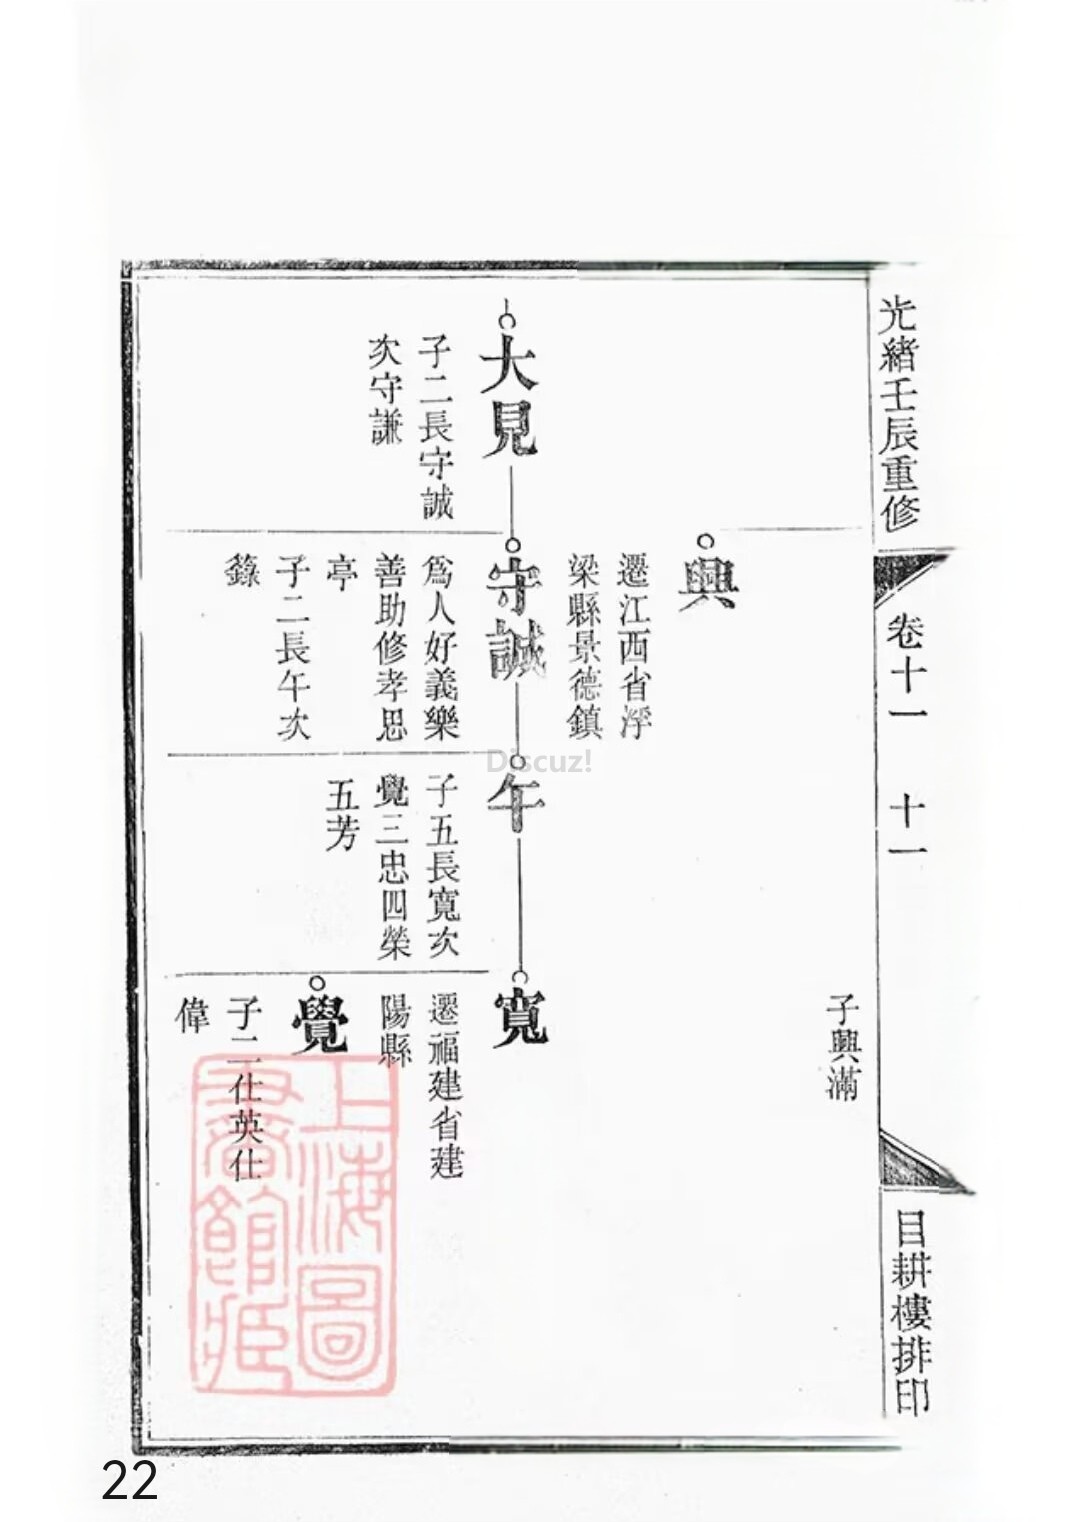 光緒壬辰重修
卷十一
十一
目耕樓排印
子興滿
興
遷江西省浮
梁縣景德鎮
大見
子二長守誠
次守謙
守誠
為人好義樂
善助修孝思
亭
子二長午次
籙
午
子五長寬次
覺三忠四榮
五芳
寬
遷福建省建
陽縣
覺
子二仕英仕
偉
上海圖
書館藏
Discuz!
22